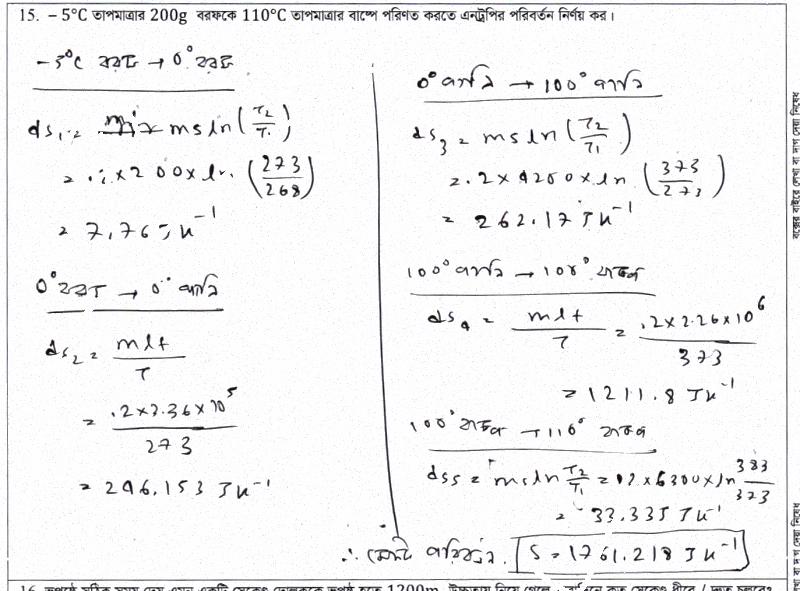 15. – 5°C তাপমাত্রার 200g বরফকে 110°C তাপমাত্রার বাষ্পে পরিণত করতে এনট্রপির পরিবর্তন নির্ণয় কর।
–5°C বরফ → 0° বরফ
ds₁ = ms ln (T₂/T₁)
= .2 × 2100 × ln (273/268)
= 7.765 JK⁻¹
0° বরফ → 0° পানি
ds₂ = mlf/T
= .2×3.36×10⁵/273
= 246.153 JK⁻¹
0° পানি → 100° পানি
ds₃ = ms ln (T₂/T₁)
= .2 × 4200 × ln (373/273)
= 262.17 JK⁻¹
100° পানি → 100° বাষ্প
ds₄ = mlf/T = .2×2.26×10⁶/373
= 1211.8 JK⁻¹
100° বাষ্প → 110° বাষ্প
ds₅ = ms ln T₂/T₁ = 0.2×6300×ln 383/373
= 33.335 JK⁻¹
∴ মোট পরিবর্তন, S = 1761.218 JK⁻¹
বক্সের বাইরে লেখা বা দাগ দেয়া নিষেধ
খা বা দাগ দেয়া নিষেধ